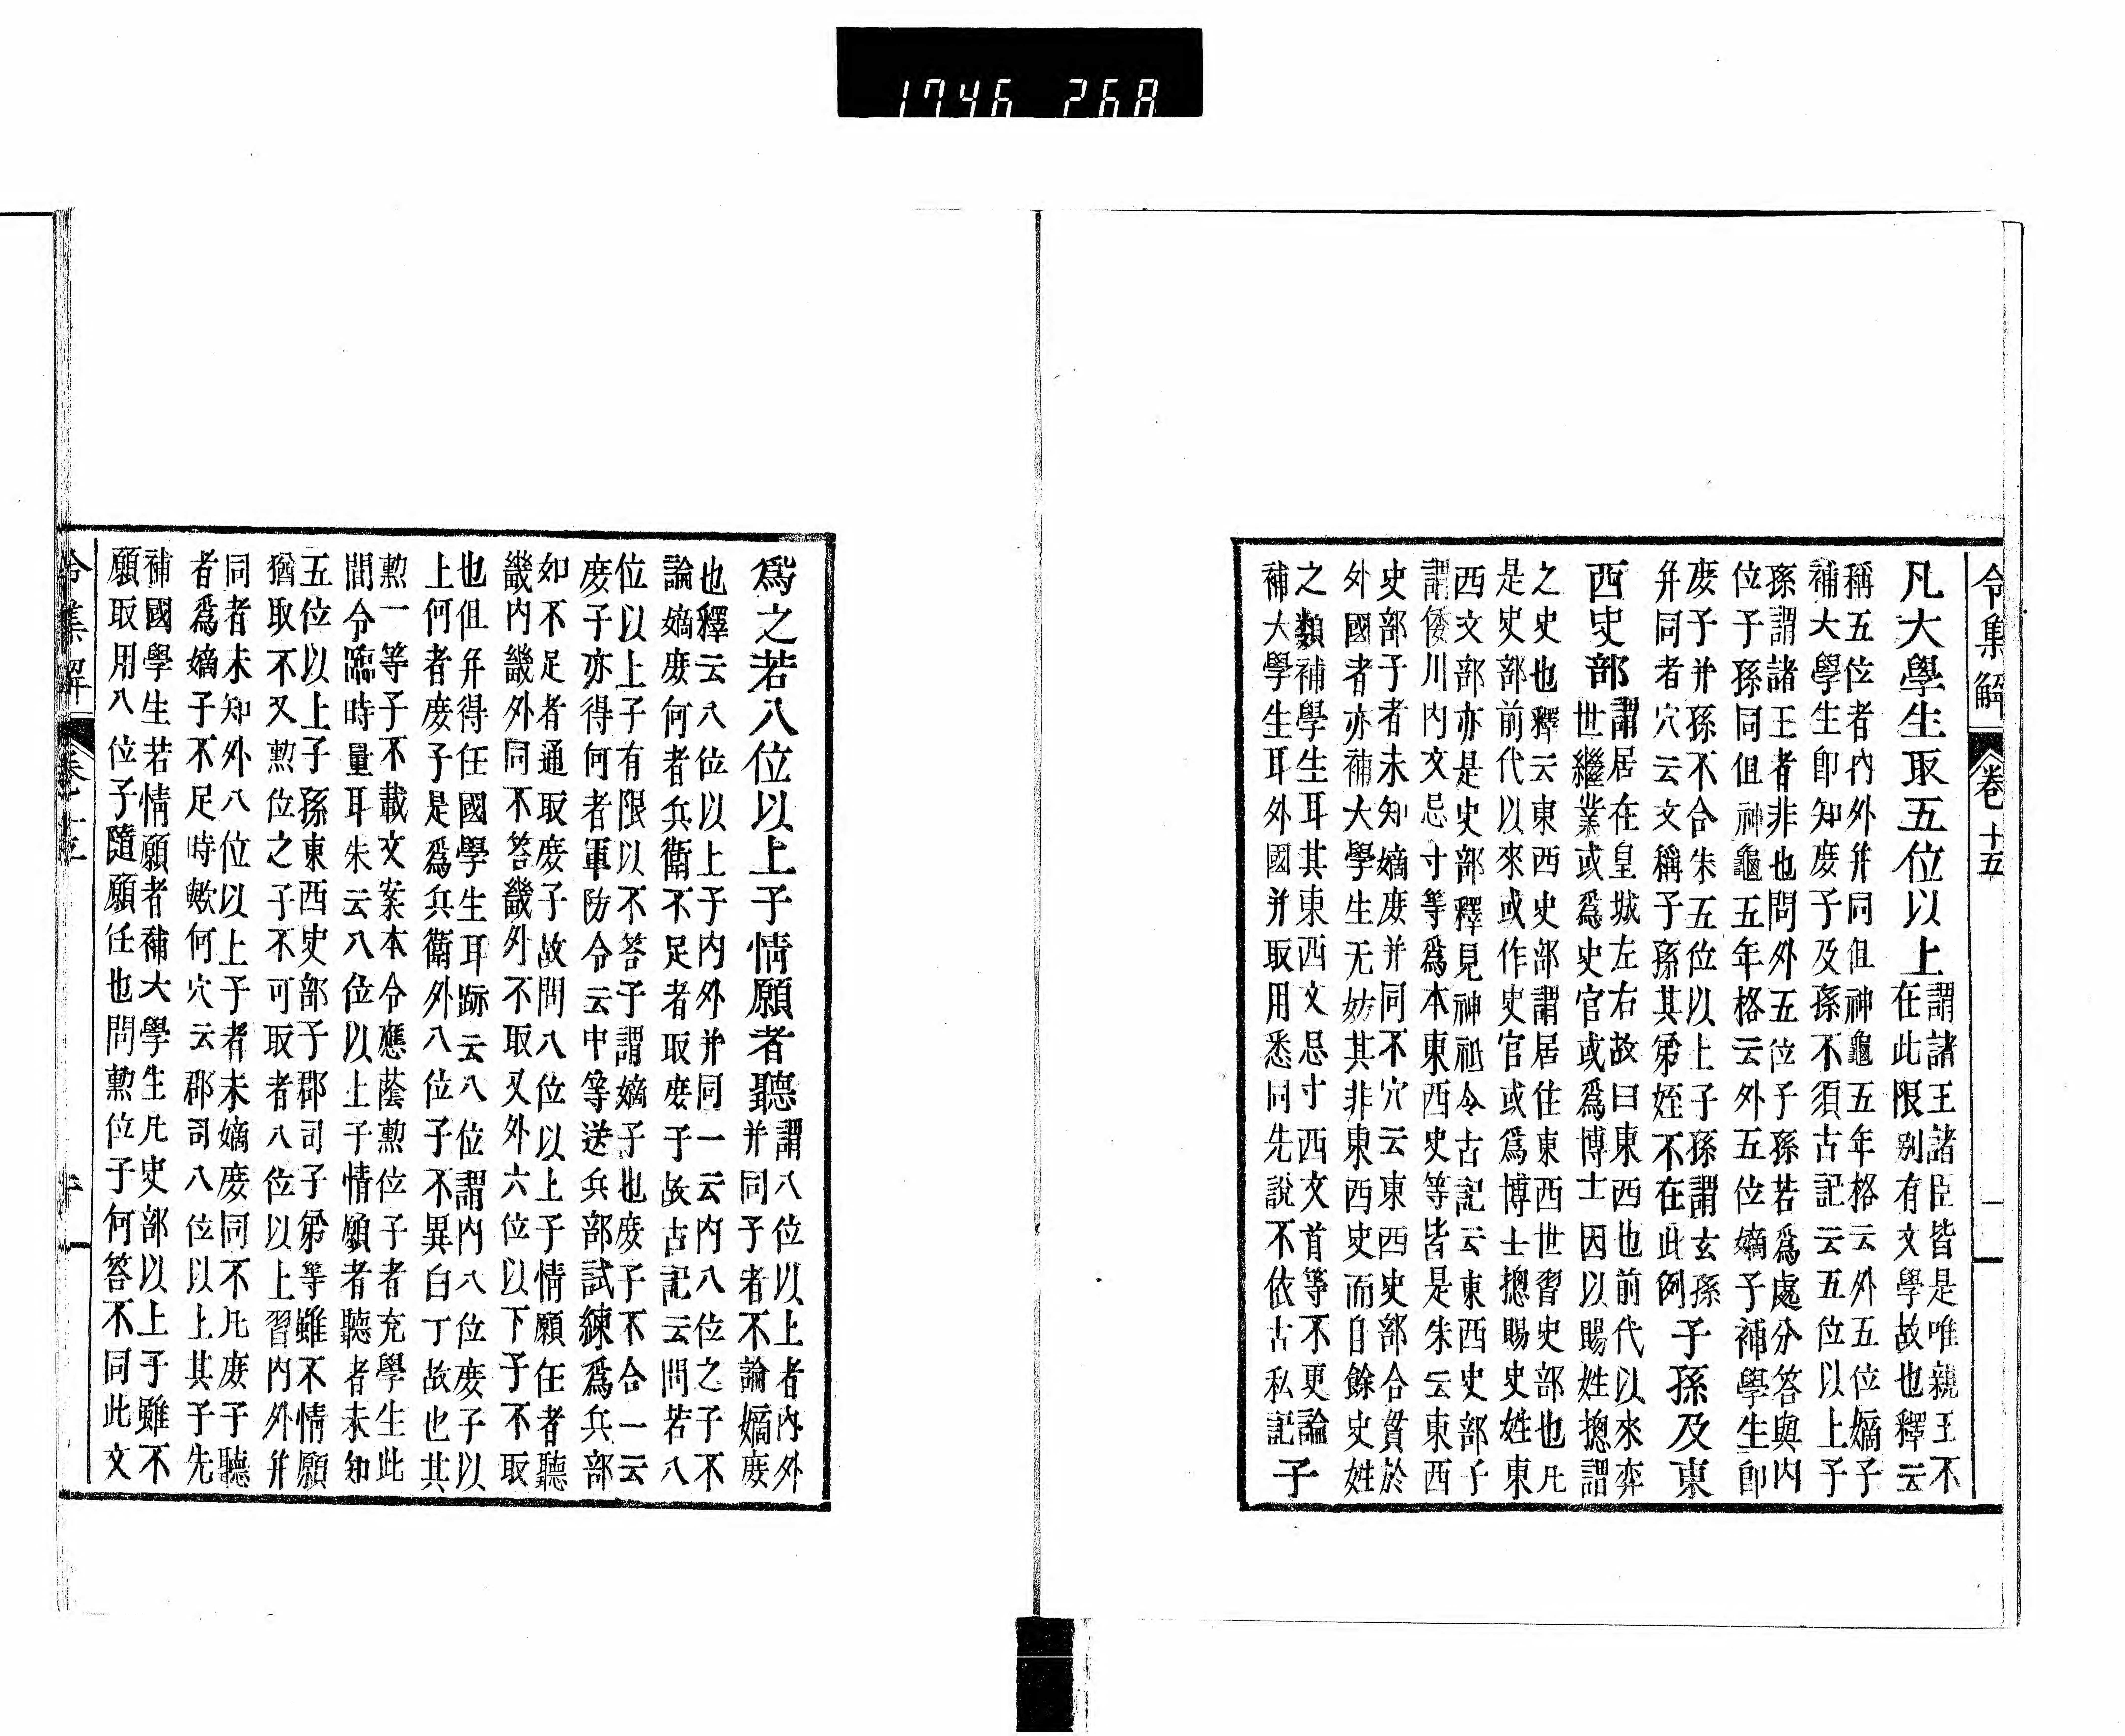 1746 268
令集解
卷十五
凡大學生取五位以上
謂諸王諸臣皆是唯親王不
在此限別有文學故也釋云
稱五位者內外并同但神龜五年格云外五位嫡子
補大學生卽知庶子及孫不須古記云五位以上子
孫謂諸王者非也問外五位子孫若爲處分答與內
位子孫同但神龜五年格云外五位嫡子補學生卽
庶子并孫不合朱五位以上子孫謂玄孫
并同者穴云文稱子孫其第姪不在此例
子孫及東
西史部
謂居在皇城左右故曰東西也前代以來奕
世繼業或爲史官或爲博士因以賜姓摠謂
之史也釋云東西史部謂居住東西世習史部也凡
是史部前代以來或作史官或爲博士摠賜史姓東
西文部亦是史部釋見神祇令古記云東西史部子
謂倭川內文忌寸等爲本東西史等皆是朱云東西
史部子者未知嫡庶并同不穴云東西史部合貧於
外國者亦補大學生无妨其非東西史而自餘史姓
之類補學生耳其東西文忌寸西文首等不更論
補大學生耳外國并取用悉同先說不依古私記
子
爲之若八位以上子情願者聽
謂八位以上者內外
并同子者不論嫡庶
也釋云八位以上子內外并同一云內八位之子不
論嫡庶何者兵衛不足者取庶子故古記云問若八
位以上子有限以不答子謂嫡子也庶子不合一云
庶子亦得何者軍防令云中等送兵部試練爲兵部
如不足者通取庶子故問八位以上子情願任者聽
畿內畿外同不答畿外不取又外六位以下子不取
也但并得任國學生耳跡云八位謂內八位庶子以
上何者庶子是爲兵衛外八位子不異白丁故也其
勲一等子不載文案本令應蔭勲位子者充學生此
間令臨時量耳朱云八位以上子情願者聽者未知
五位以上子孫東西史部子郡司子第等雖不情願
猶取不又勲位之子不可取者八位以上習內外并
同者未知外八位以上子者未嫡庶同不凡庶子聽
者爲嫡子不足時歟何穴云郡司八位以上其子先
補國學生若情願者補大學生凡史部以上子雖不
願取用八位子隨願任也問勲位子何答不同此文